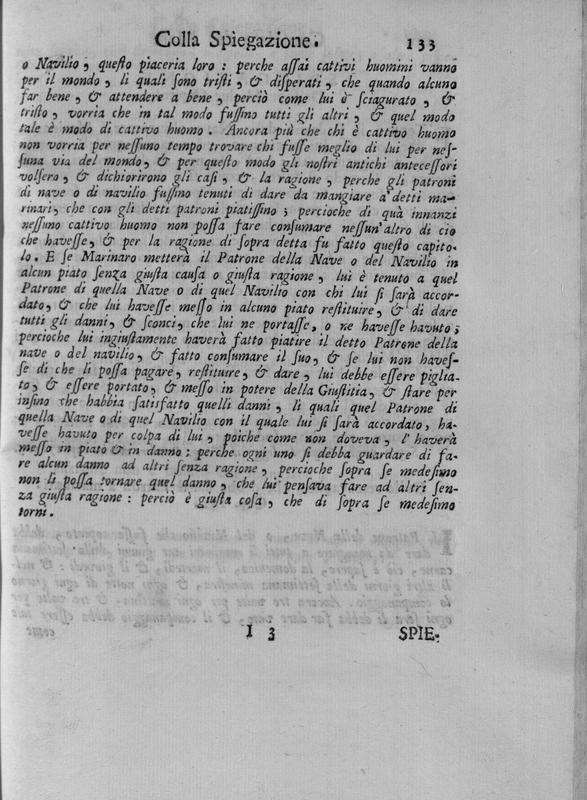 Colla Spiegazione. 133
o Navilio, queſto piaceria loro: perche aſſai cattivi huomini vanno
per il mondo, li quali ſono triſti, & diſperati, che quando alcuno
far bene, & attendere a bene, perciò come lui è ſciagurato, &
triſto, vorria che in tal modo fuſſino tutti gli altri, & quel modo
tale è modo di cattivo huomo. Ancora più che chi è cattivo huomo
non vorria per neſſuno tempo trovare chi fuſſe meglio di lui per neſ-
ſuna via del mondo, & per queſto modo gli noſtri antichi anteceſſori
volſero, & dichiorirono gli caſi, & la ragione, perche gli patroni
di nave o di navilio fuſſino tenuti di dare da mangiare a'detti ma-
rinari, che con gli detti patroni piatiſſino; percioche di quà innanzi
neſſuno cattivo huomo non poſſa fare conſumare neſſun'altro di cio
che haveſſe, & per la ragione di ſopra detta fu fatto queſto capito-
lo. E ſe Marinaro metterà il Patrone della Nave o del Navilio in
alcun piato ſenza giuſta cauſa o giuſta ragione, lui è tenuto a quel
Patrone di quella Nave o di quel Navilio con chi lui ſi ſarà accor-
dato, & che lui haveſſe meſſo in alcuno piato reſtituire, & di dare
tutti gli danni, & ſconci, che lui ne portaſſe, o ne haveſſe havuto;
percioche lui ingiuſtamente haverà fatto piatire il detto Patrone della
nave o del navilio, & fatto conſumare il ſuo, & ſe lui non haveſ-
ſe di che li poſſa pagare, reſtituire, & dare, lui debbe eſſere piglia-
to, & eſſere portato, & meſſo in potere della Giuſtitia, & ſtare per
inſino che habbia ſatisfatto quelli danni, li quali quel Patrone di
quella Nave o di quel Navilio con il quale lui ſi ſarà accordato, ha-
veſſe havuto per colpa di lui, poiche come non doveva, l'haverà
meſſo in piato & in danno: perche ogni uno ſi debba guardare di fa-
re alcun danno ad altri ſenza ragione, percioche ſopra ſe medeſimo
non li poſſa tornare quel danno, che lui penſava fare ad altri ſen-
za giuſta ragione: perciò è giuſta coſa, che di ſopra ſe medeſimo
torni.
I 3 SPIE-